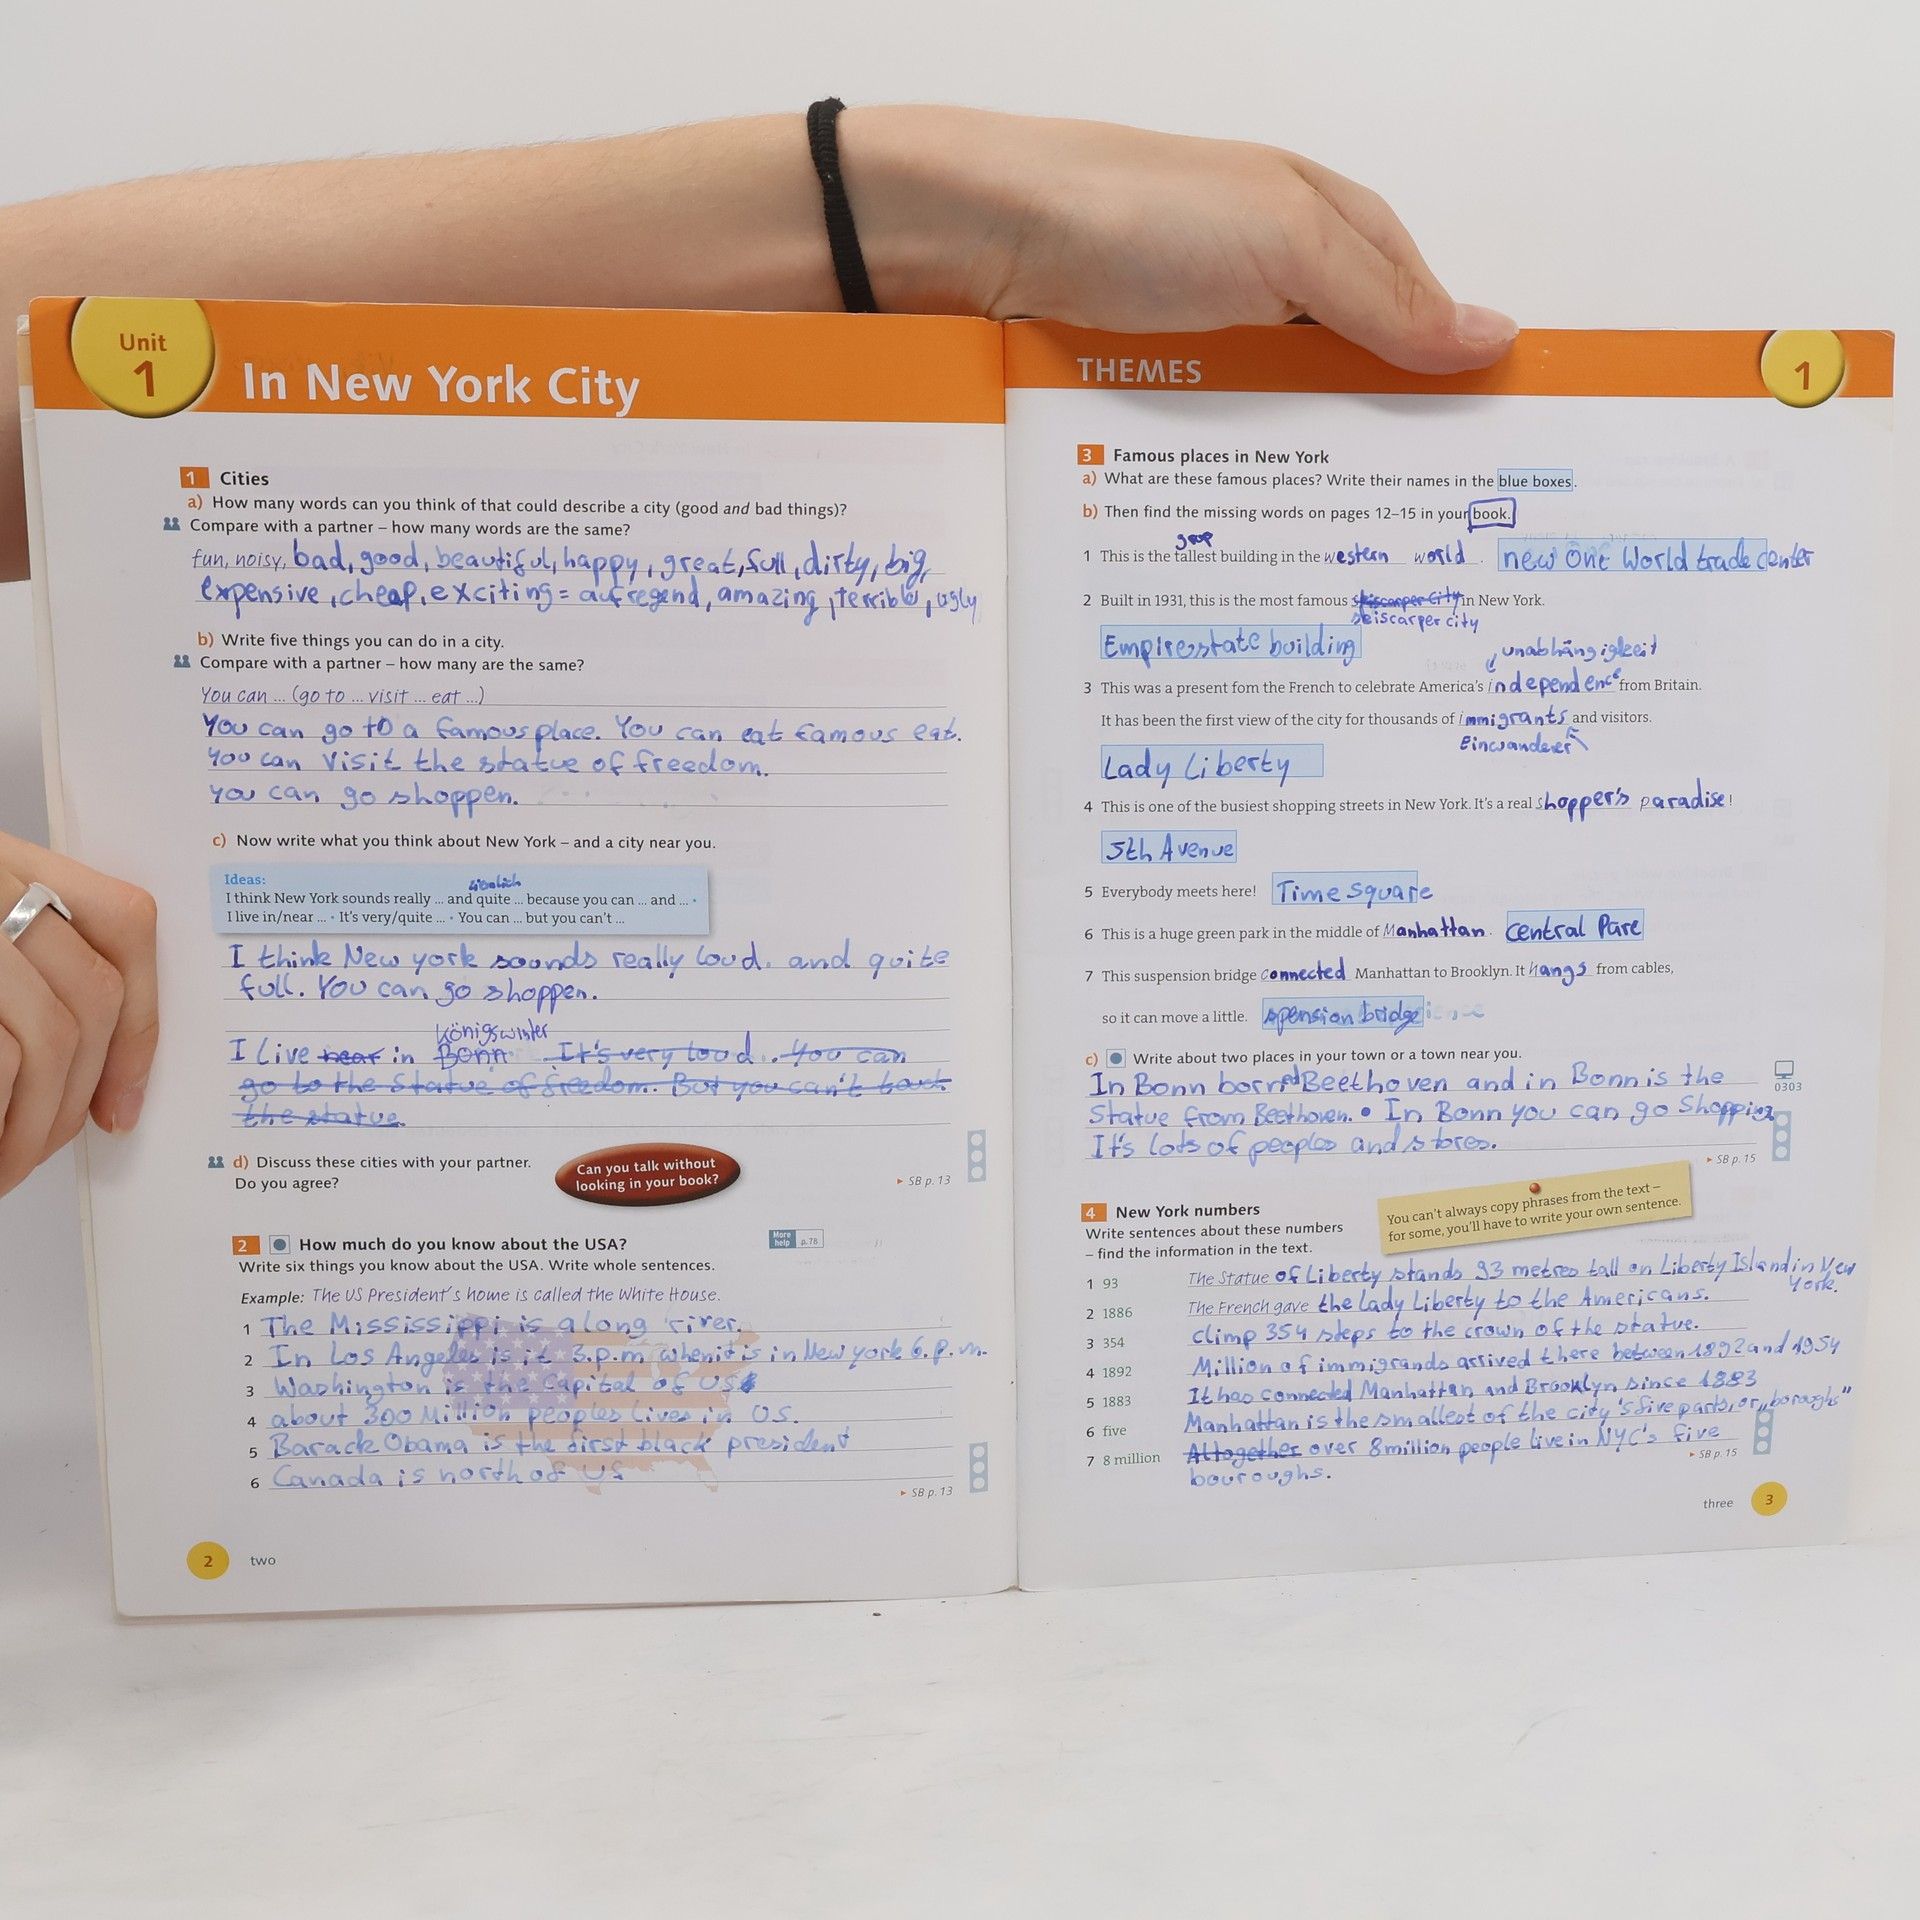 Unit
1
In New York City
1 Cities
a) How many words can you think of that could describe a city (good and bad things)?
Compare with a partner – how many words are the same?
fun, noisy, bad, good, beautiful, happy, great, full, dirty, big,
expensive, cheap, exciting = aufregend, amazing, terrible, ugly
b) Write five things you can do in a city.
Compare with a partner – how many are the same?
You can ... (go to ... visit ... eat ...)
You can go to a famous place. You can eat famous eat.
You can visit the statue of freedom.
you can go shoppen.
c) Now write what you think about New York – and a city near you.
Ideas:
ziemlich
I think New York sounds really ... and quite ... because you can ... and ... •
I live in/near ... • It's very/quite ... • You can ... but you can't ...
I think New york sounds really loud. and quite
full. You can go shoppen.
Königswinter
I live near in Bonn. It's very loud. You can
go to the Statue of freedom. But you can't
the statue.
d) Discuss these cities with your partner.
Do you agree?
Can you talk without
looking in your book?
▸ SB p. 13
2 How much do you know about the USA?
More help p. 78
Write six things you know about the USA. Write whole sentences.
Example: The US President's home is called the White House.
1 The Mississippi is a long river.
2 In Los Angeles is it 3.p.m when it is in New york 6.p.m.
3 Washington is the Capital of US
4 about 300 Million peoples lives in U.S.
5 Barack Obama is the first black president
6 Canada is north of US
▸ SB p. 13
2 two
THEMES
1
3 Famous places in New York
a) What are these famous places? Write their names in the blue boxes.
b) Then find the missing words on pages 12–15 in your book.
1 This is the tallest building in the western world. new One World trade center
2 Built in 1931, this is the most famous in New York.
skiscarper city
Empire state building
unabhängigkeit
3 This was a present fom the French to celebrate America's independence from Britain.
It has been the first view of the city for thousands of immigrants and visitors.
Einwanderer
Lady Liberty
4 This is one of the busiest shopping streets in New York. It's a real shopper's paradise!
5th Avenue
5 Everybody meets here! Time Square
6 This is a huge green park in the middle of Manhattan. central Parc
7 This suspension bridge connected Manhattan to Brooklyn. It hangs from cables,
so it can move a little. spension bridge
c) Write about two places in your town or a town near you.
In Bonn borned Beethoven and in Bonn is the
0303
Statue from Beethoven. • In Bonn you can go Shopping
It's lots of peoples and stores.
▸ SB p. 15
You can't always copy phrases from the text –
for some, you'll have to write your own sentence.
4 New York numbers
Write sentences about these numbers
– find the information in the text.
1 93 The Statue of Liberty stands 93 metres tall on Liberty Island in New
York.
2 1886 The French gave the Lady Liberty to the Americans.
3 354 climp 354 steps to the crown of the statue.
4 1892 Million of immigrands arrived there between 1892 and 1954
5 1883 It has connected Manhattan and Brooklyn since 1883
6 five Manhattan is the smallest of the city's five parts, or „boroughs"
7 8 million Altogether over 8 million people live in NYC's five
bouroughs.
▸ SB p. 15
three 3